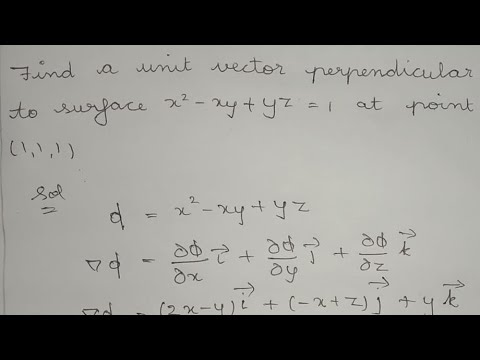 Find a unit vector perpendicular
to surface x² - xy + yz = 1 at point
(1,1,1)
Sol
ϕ = x² - xy + yz
∇ϕ = ∂ϕ/∂x i⃗ + ∂ϕ/∂y j⃗ + ∂ϕ/∂z k⃗
∇ϕ = (2x-y) i⃗ + (-x+z) j⃗ + y k⃗